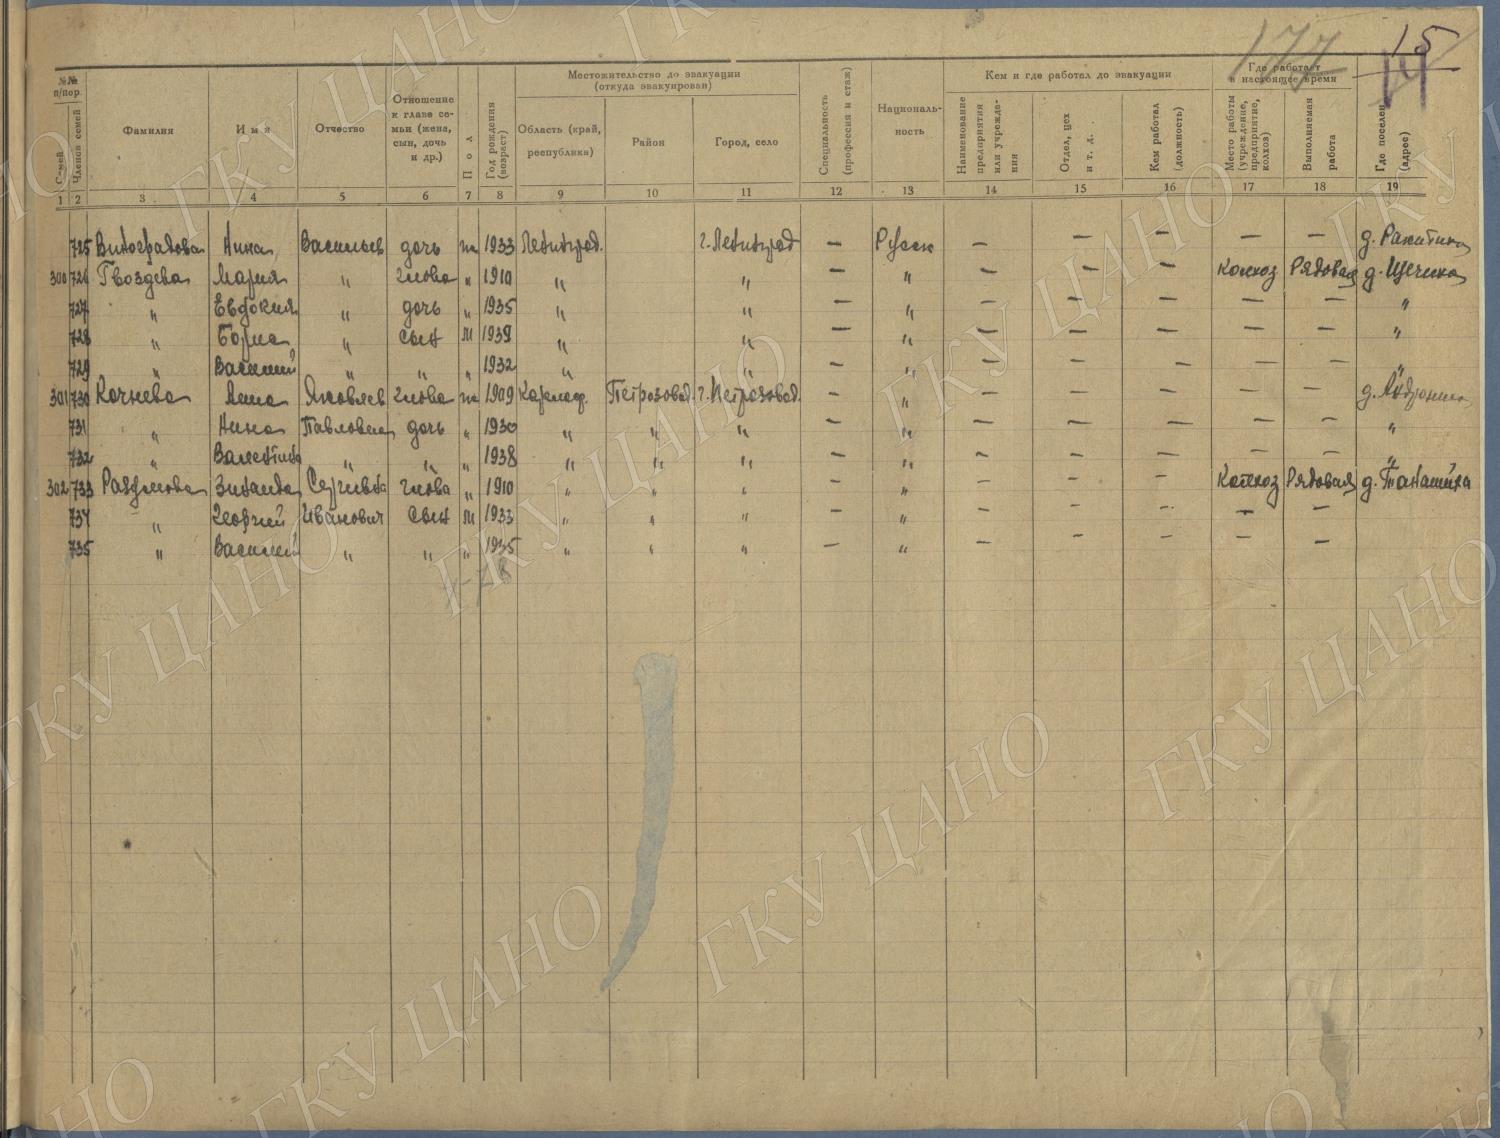 177 15
№№ п/пор. Местожительство до эвакуации (откуда эвакуирован) Кем и где работал до эвакуации Где работает в настоящее время
Семей Членов семей Фамилия Имя Отчество Отношение к главе семьи (жена, сын, дочь и др.) Пол Год рождения (возраст) Область (край, республика) Район Город, село Специальность (профессия и стаж) Националь-ность Наименование предприятия или учрежде-ния Отдел, цех и т. д. Кем работал (должность) Место работы (учреждение, предприятие, колхоз) Выполняемая работа Где поселен (адрес)
1 2 3 4 5 6 7 8 9 10 11 12 13 14 15 16 17 18 19
725 Виноградова Нина Васильев дочь ж 1933 Ленинград. г. Ленинград — Русск — — — — — д. Ракитина
300 726 Гвоздева Мария " глова " 1910 " " — " — — — колхоз Рядовая д.
727 " Евдокия " дочь " 1935 " " — " — — — — — "
728 " Бориc " сын м 1939 " " — " — — — — — "
729 " Василий " " " 1932 " " — " — — — — — "
301 730 Кочнева Анна Яковлев глова ж 1909 Петрозавод. г. Петрозавод. — " — — — — — д.
731 " Нина Павловна дочь " 1930 " " " — " — — — — — "
732 " Валентина " " " 1938 " " " — " — — — — — "
302 733 Разумова Зинаида Сергеевна глова " 1910 " " " — " — — — Колхоз Рядовая д.
734 " Георгий Иванович сын м 1933 " " " — " — — — — —
735 " Василий " " " 1935 " " " — " — — — — —
ГКУ ЦАНО